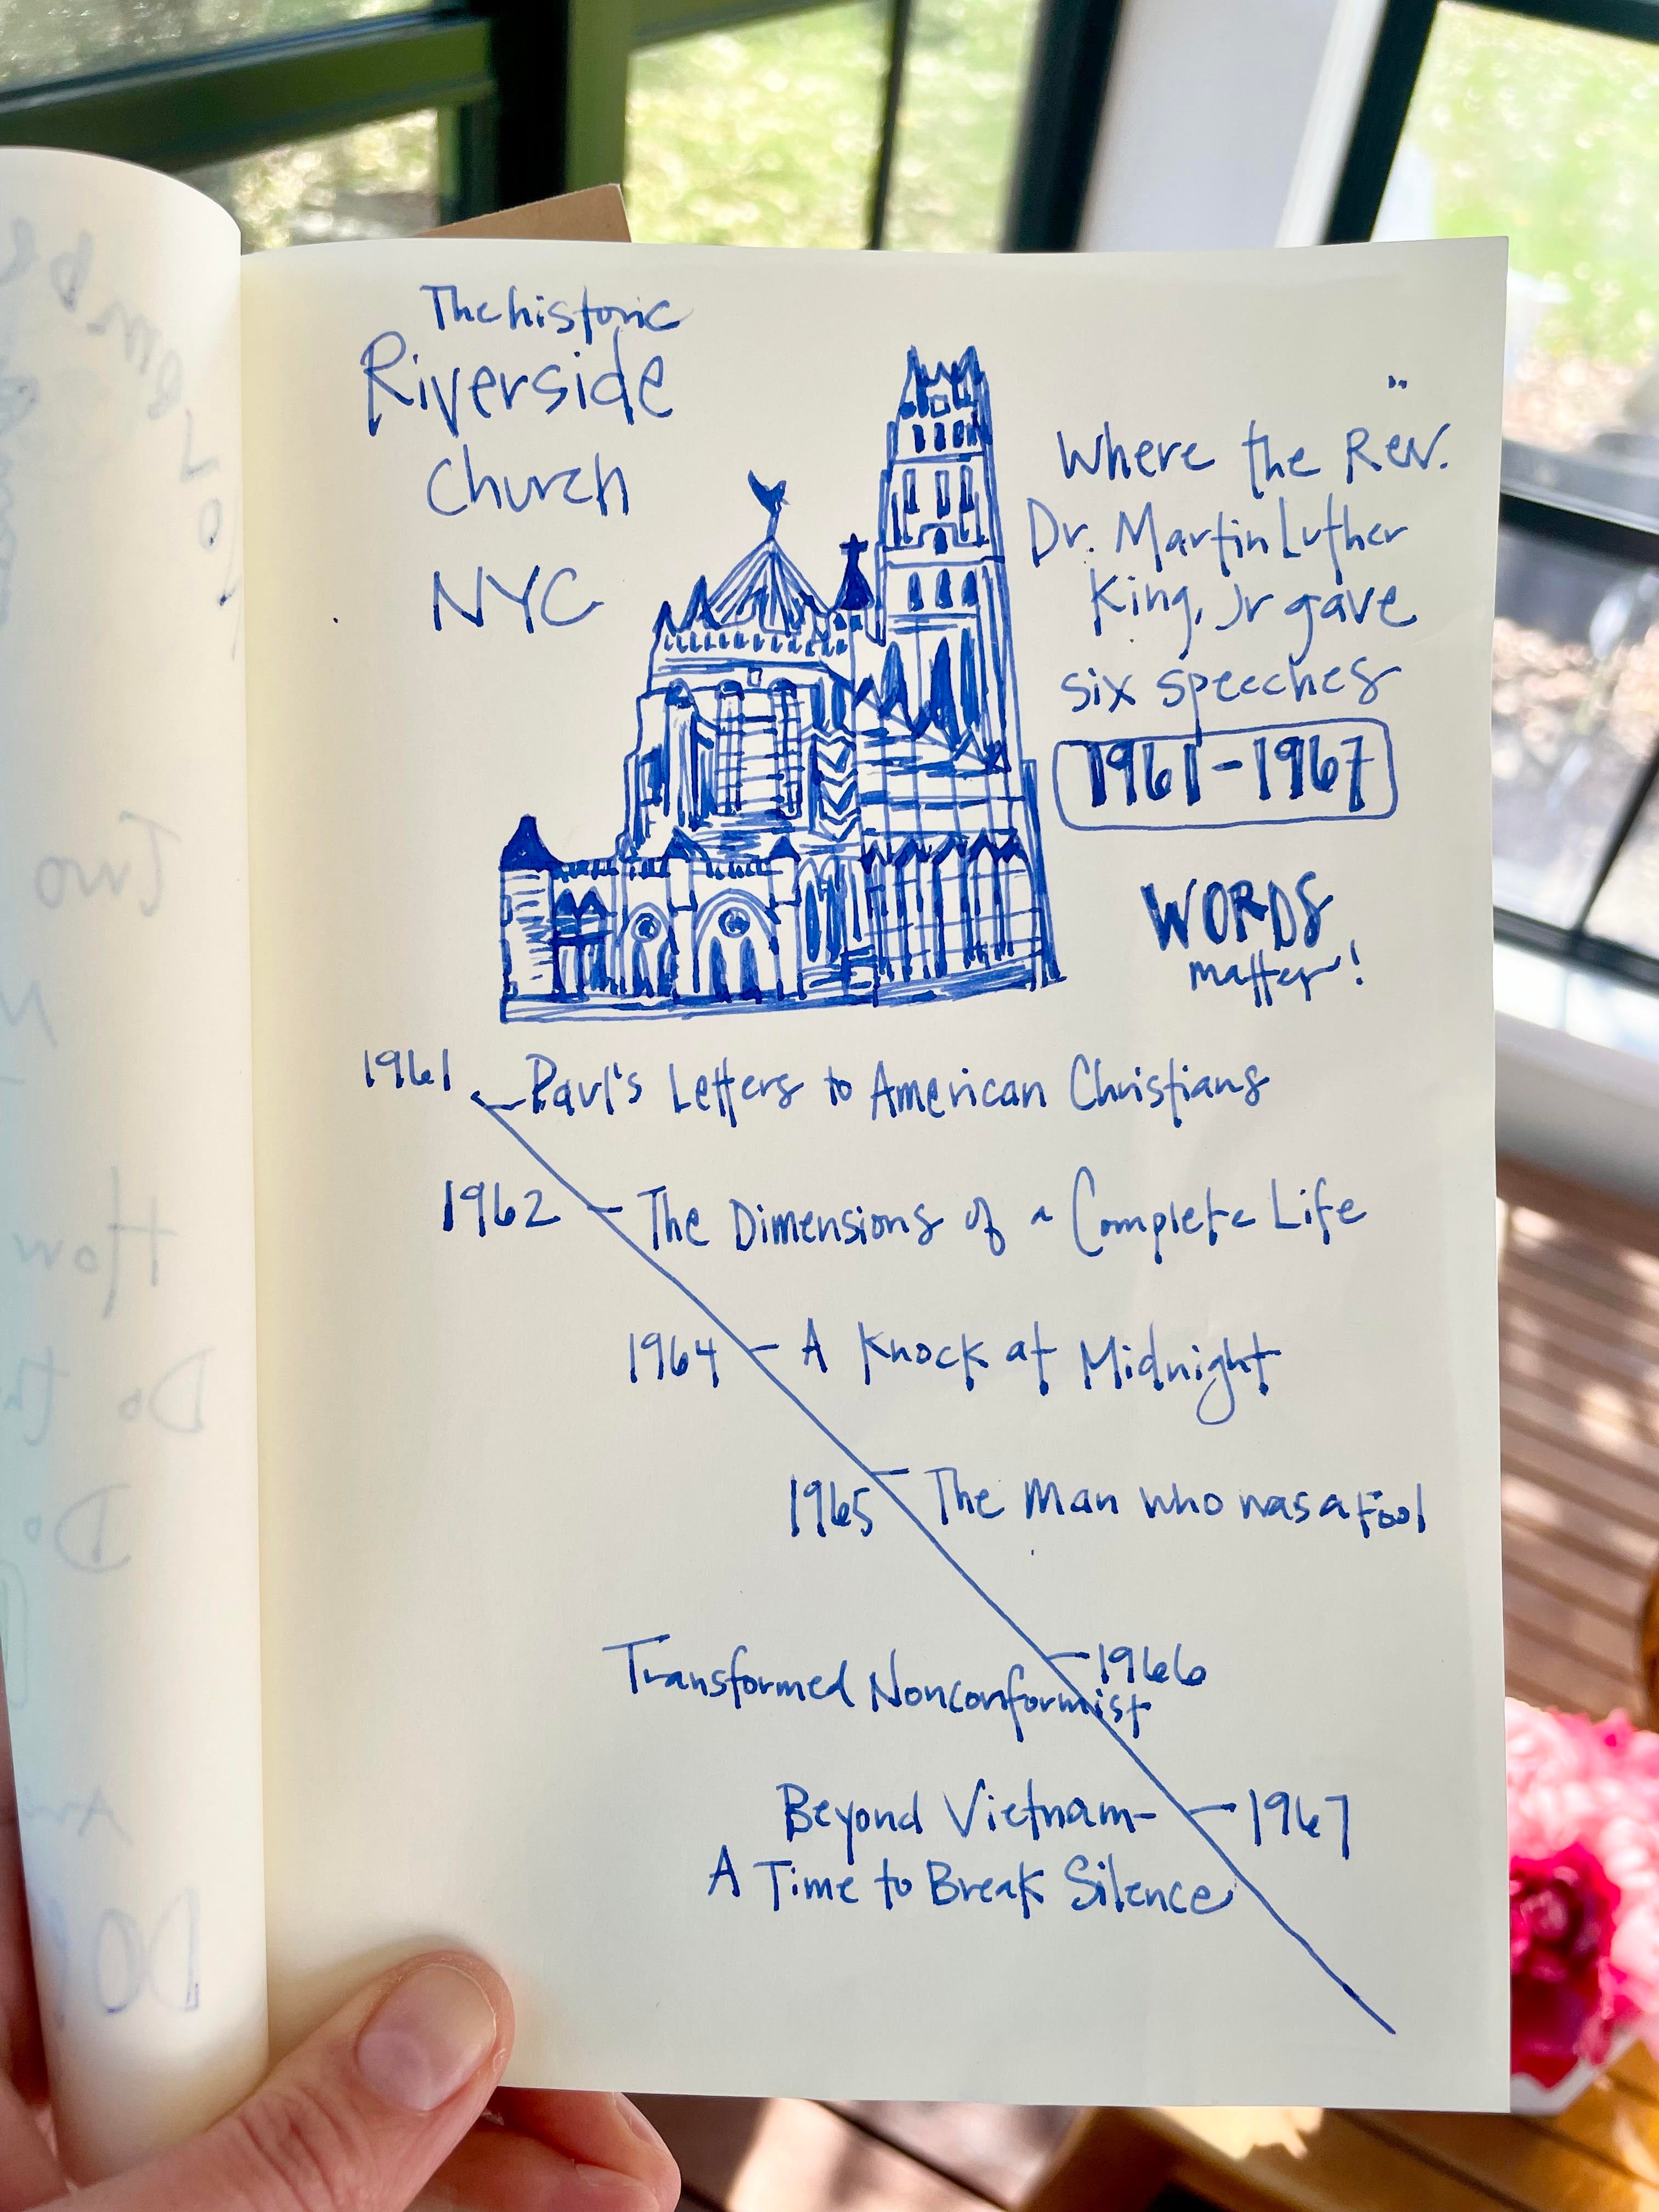 The historic
Riverside
Church
NYC
Where the Rev.
Dr. Martin Luther
King, Jr gave
six speeches
1961-1967
WORDS
matter!
1961 Paul's Letters to American Christians
1962 The Dimensions of a Complete Life
1964 A Knock at Midnight
1965 The Man who was a fool
1966
Transformed Nonconformist
Beyond Vietnam- 1967
A Time to Break Silence
Two
How
Do
Do